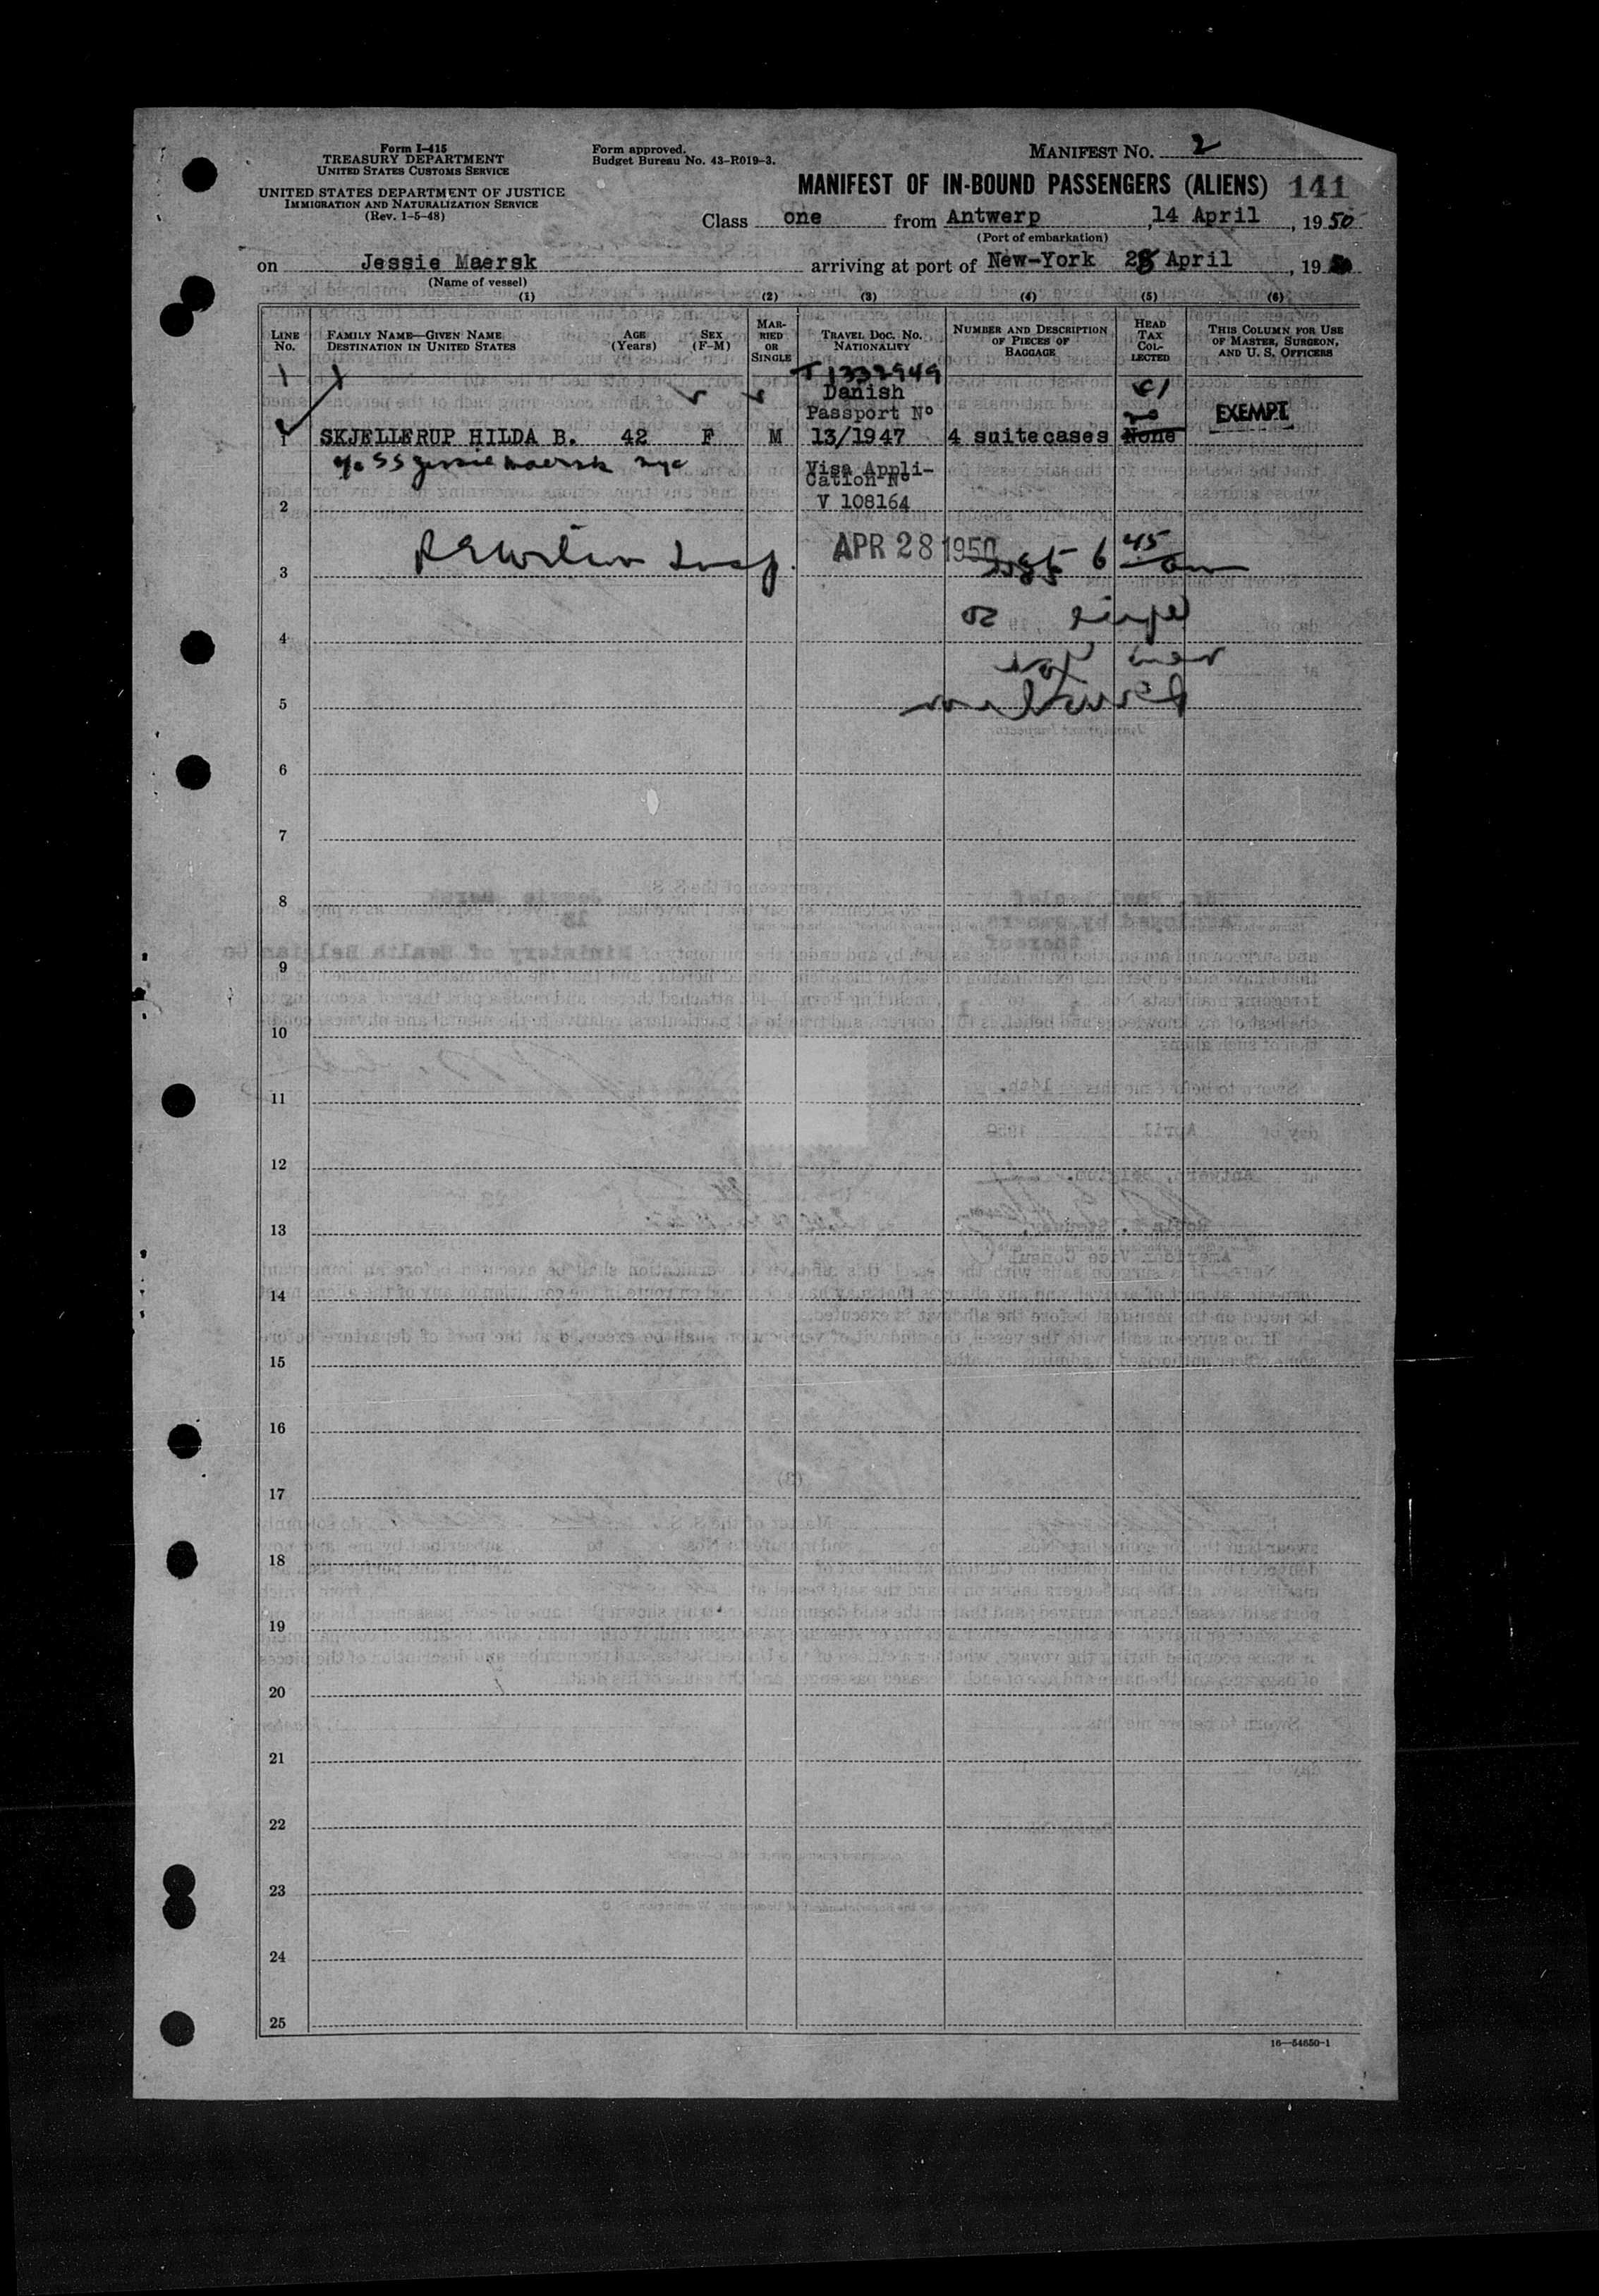 Form I-415
TREASURY DEPARTMENT
UNITED STATES CUSTOMS SERVICE
UNITED STATES DEPARTMENT OF JUSTICE
IMMIGRATION AND NATURALIZATION SERVICE
(Rev. 1-5-48)
Form approved.
Budget Bureau No. 43-R019-3.
MANIFEST NO. 2
MANIFEST OF IN-BOUND PASSENGERS (ALIENS) 141
Class one from Antwerp, 14 April, 1950
(Port of embarkation)
on Jessie Maersk arriving at port of New-York 28 April, 19
(Name of vessel)
(1) (2) (3) (4) (5) (6)
LINE No.
FAMILY NAME—GIVEN NAME
DESTINATION IN UNITED STATES
AGE (Years)
SEX (F-M)
MARRIED OR SINGLE
TRAVEL DOC. NO.
NATIONALITY
NUMBER AND DESCRIPTION OF PIECES OF BAGGAGE
HEAD TAX COLLECTED
THIS COLUMN FOR USE OF MASTER, SURGEON, AND U. S. OFFICERS
T1332949
Danish
Passport Nº
EXEMPT
1 SKJELLERUP HILDA B. 42 F M 13/1947 4 suitecases None
c/o SS Jessie Maersk nyc
Visa Appli-
Cation Nº
2 V 108164
APR 28 1950 6 45 am
3
4
5
6
7
8
9
10
11
12
13
14
15
16
17
18
19
20
21
22
23
24
25
16—54650-1